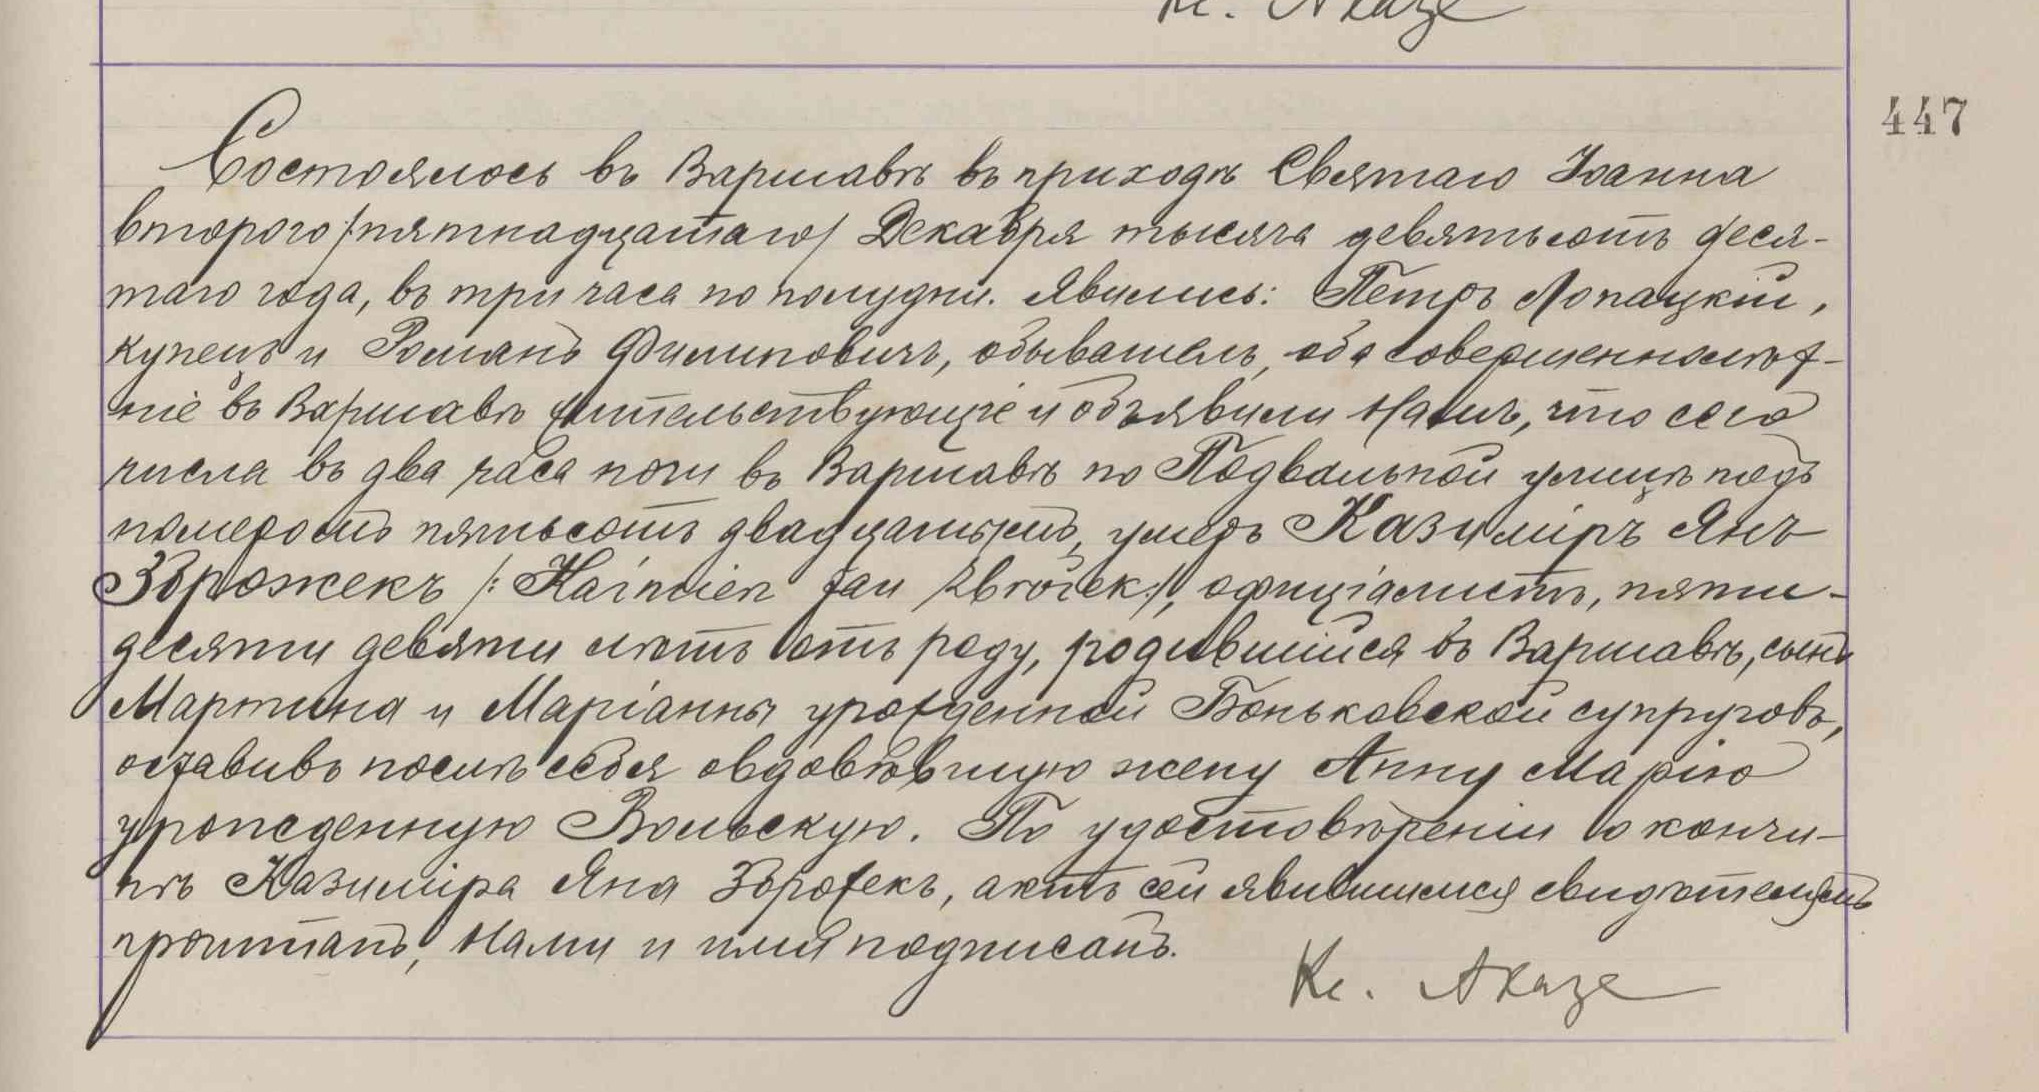 Кс. Аказе
447
Состоялось въ Варшавѣ въ приходѣ Святаго Іоанна
второго /пятнадцатаго/ Декабря тысяча девятьсотъ деся-
таго года, въ три часа по полудни. Явились: Петръ Лопацкій,
купецъ и Романъ Филиповичъ, обыватель, оба совершеннолѣт-
ніе въ Варшавѣ жительствующіе и объявили Намъ, что сего
числа въ два часа ночи въ Варшавѣ по Подвальной улицѣ подъ
номеромъ пятьсотъ двадцатымъ, умеръ Казиміръ Янъ
Зброжекъ /: Kazimierz Jan Zbrożek:/, оффиціалистъ, пяти-
десяти девяти лѣтъ отъ роду, родившійся въ Варшавѣ, сынъ
Мартина и Маріанны урожденной Боньковской супруговъ,
оставивъ послѣ себя овдовѣвшую жену Анну Марію
урожденную Вольскую. По удостовѣреніи о кончи-
нѣ Казиміра Яна Зброжекъ, актъ сей явившимся свидѣтелямъ
прочитанъ, Нами и ими подписанъ.
Кс. Аказе